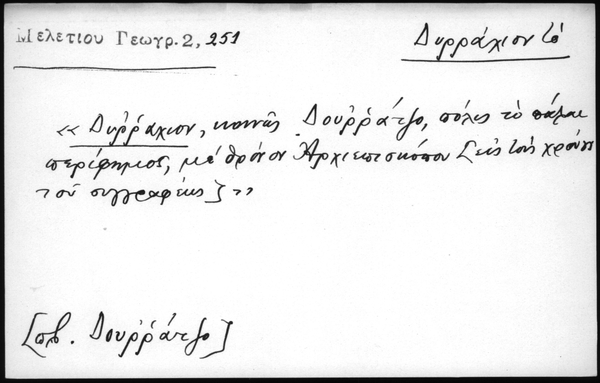 Μελετιου Γεωγρ. 2, 251
Δυρράχιον τό
« Δυῤῥάχιον, κοινῶς Δουῤῥάτζο, πόλις τὸ πάλαι
περίφημος, μὲ θρόνον Ἀρχιεπισκόπου [εἰς τοὺς χρόνους
τοῦ συγγραφέως] »
[πβ. Δουῤῥάτζο]